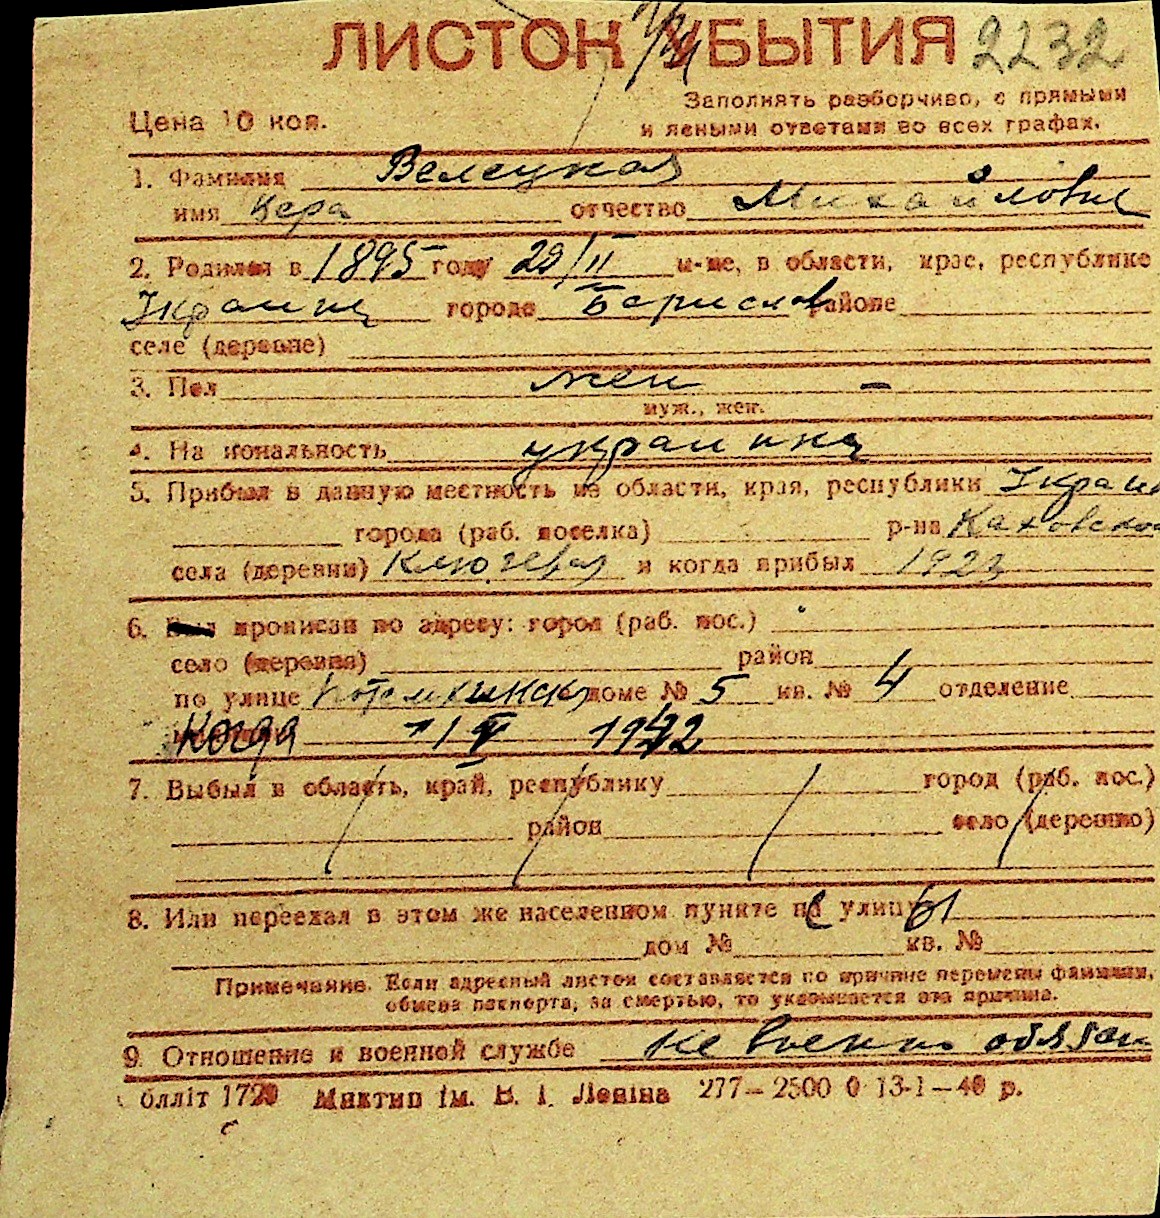 ЛИСТОК УБЫТИЯ 2232
Цена 10 коп.
Заполнять разборчиво, с прямыми
и ясными ответами во всех графах.
1. Фамилия Велецкая
имя Вера отчество Михайловна
2. Родился в 1895 году 29/II м-це, в области, крае, республике
Украина городе Берислав районе
селе (деревне)
3. Пол жен –
муж., жен.
4. Национальность украинка
5. Прибыл в данную местность из области, края, республики Украина
города (раб. поселка) р-на Каховского
села (деревни) Ключевая и когда прибыл 1923
6. прописан по адресу: город (раб. пос.)
село (деревня) район
по улице Потемкинская доме № 5 кв. № 4 отделение
Когда 1942
7. Выбыл в область, край, республику город (раб. пос.)
район село (деревню)
8. Или переехал в этом же населенном пункте на улицу
дом № кв. №
Примечание. Если адресный листок составляется по причине перемены фамилии,
обмена паспорта, за смертью, то указывается эта причина.
9. Отношение к военной службе не военно обязан
блліт 1720 Миктип ім. В. І. Леніна 277–2500 0 13-1–40 р.